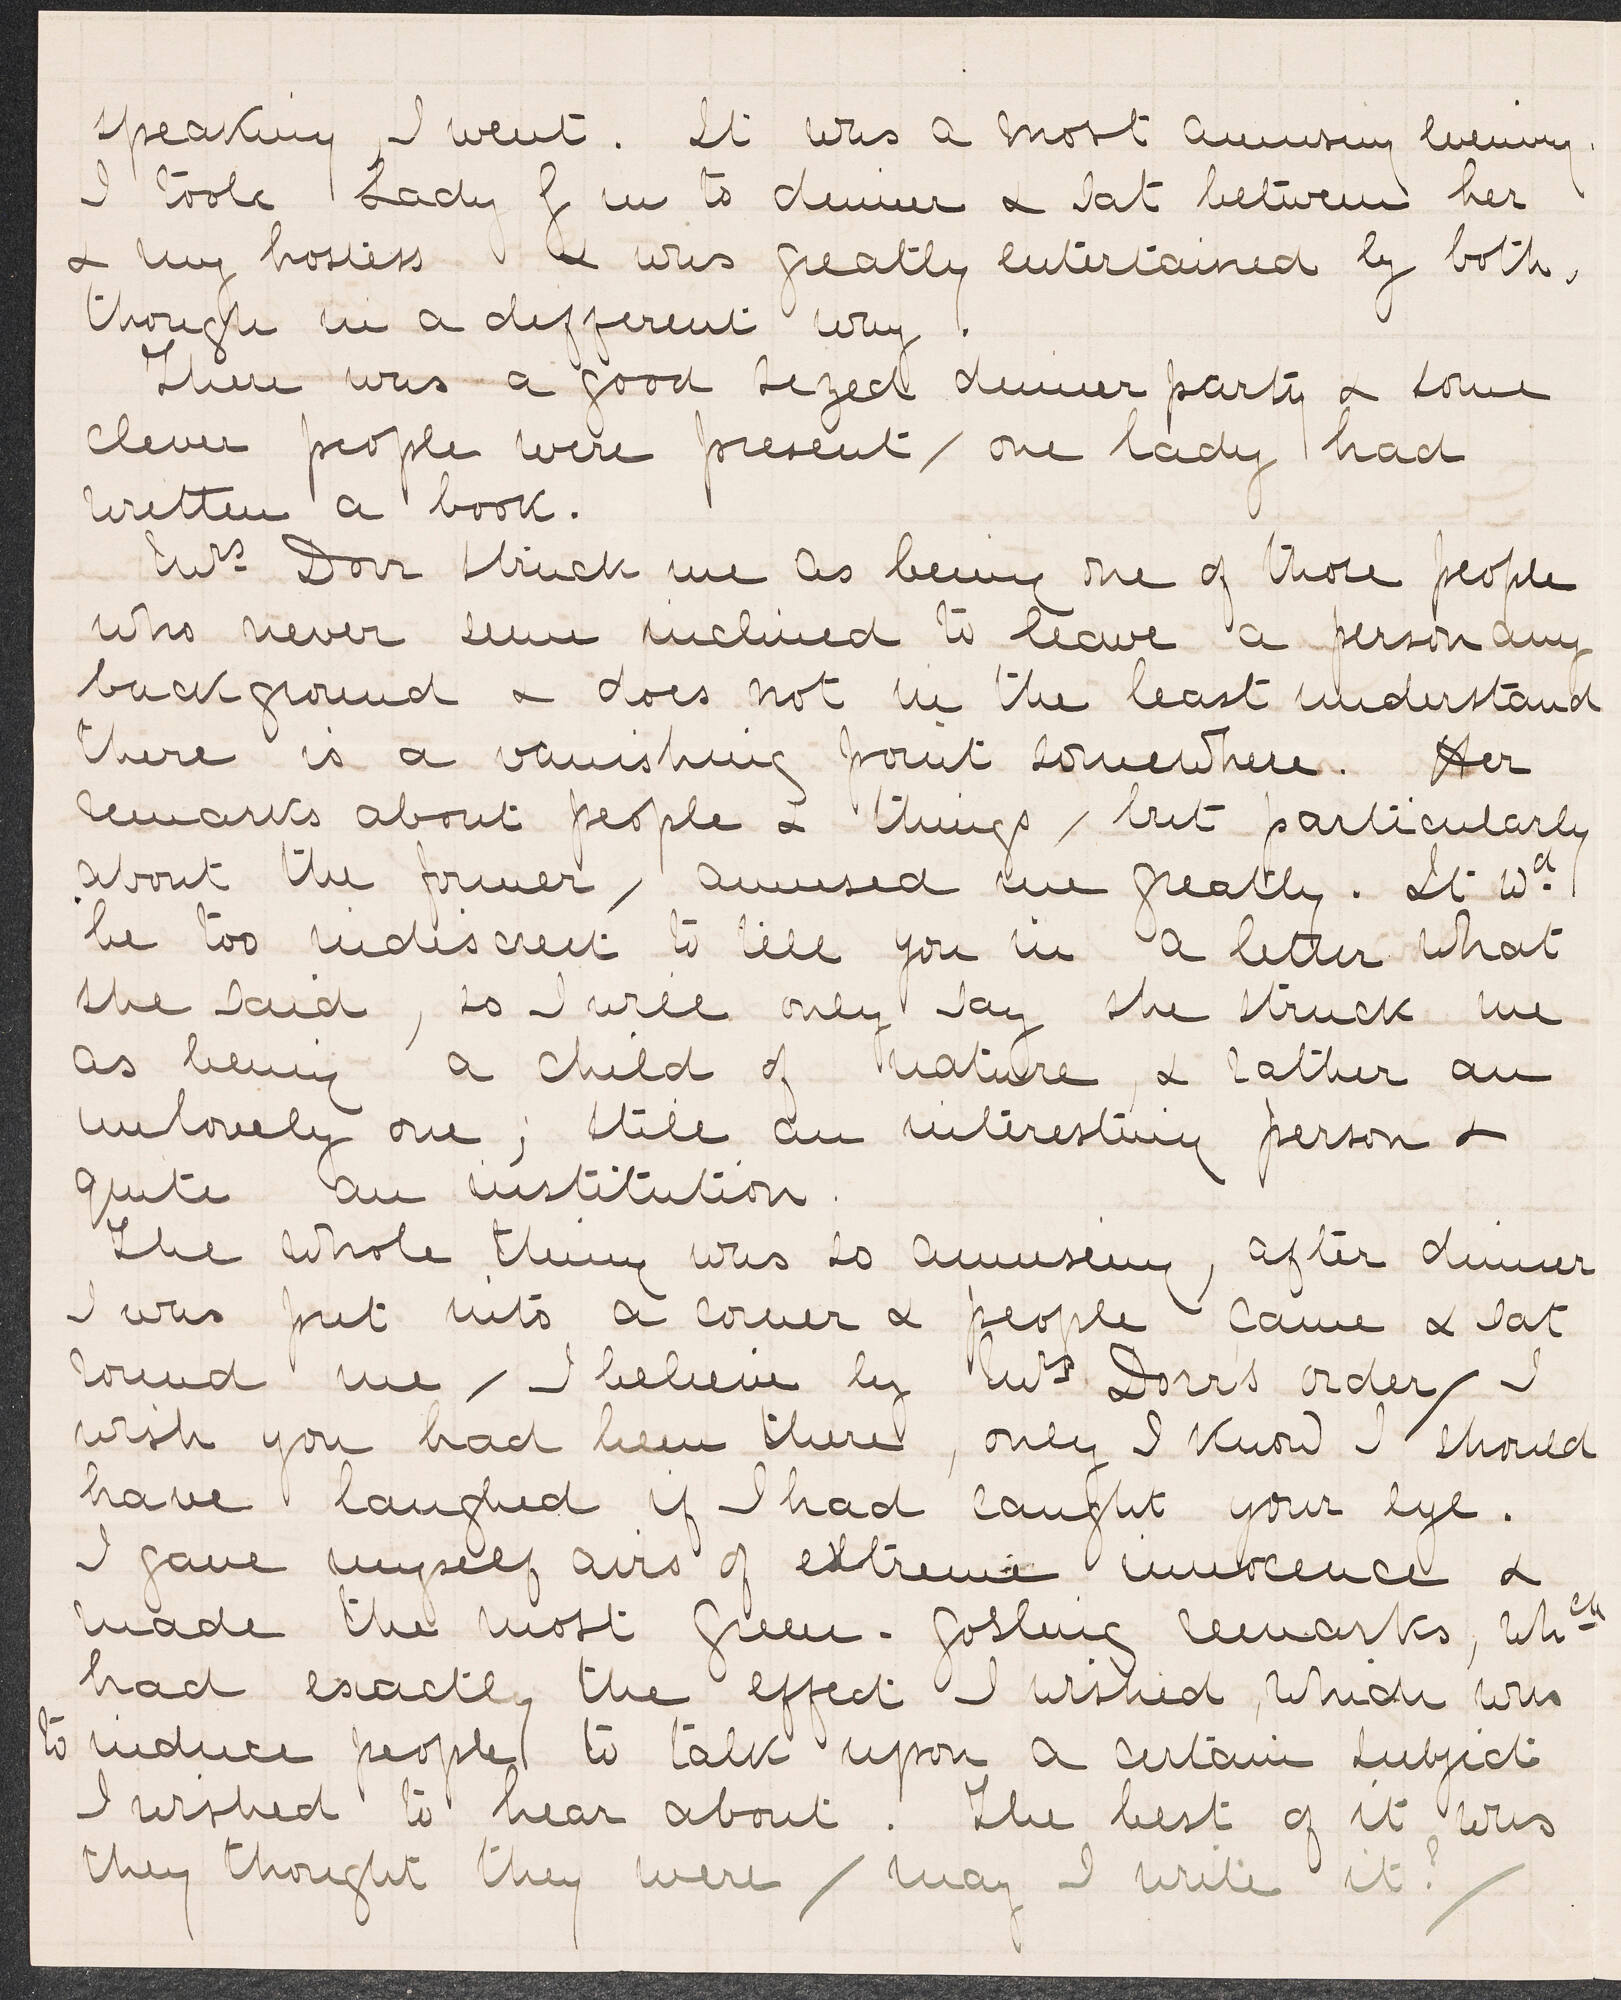 speaking, I went. It was a most amusing evening.
I took Lady G in to dinner & sat between her
& my hostess & was greatly entertained by both,
though in a different way.
There was a good sezed dinner party & some
clever people were present / one lady had
written a book.
Mrs Dorr struck me as being one of those people
who never seem inclined to leave a person any
background & does not in the least understand
there is a vanishing point somewhere. Her
remarks about people & things / but particularly
about the former / amused me greatly. It wd
be too indiscreet to tell you in a letter what
she said, so I will only say she struck me
as being a child of nature, & rather an
unlovely one; still an interesting person &
quite an institution.
The whole thing was so amuseing, after dinner
I was put into a corner & people came & sat
round me / I believe by Mrs Dorr's order / I
wish you had been there, only I know I should
have laughed if I had caught your eye.
I gave myself airs of extreme innocence &
made the most green-gosling remarks, whch
had exactly the effect I wished, which was
to induce people to talk upon a certain subject
I wished to hear about. The best of it was
they thought they were / may I write it? /